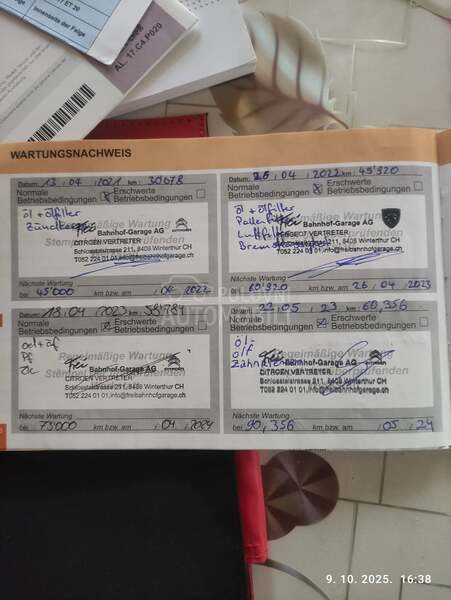 ET 20
Innenseite der Felge
AL. 17.C4 P020
WARTUNGSNACHWEIS
13 . 04 . 2021 km: 30678
Normale Betriebsbedingungen
Erschwerte Betriebsbedingungen
öl + ölfilter
Regelmäßige Wartung
frei Bahnhof-Garage AG
CITROËN VERTRETER
CITROËN
Schlosstalstrasse 211, 8408 Winterthur CH
T052 224 01 01, info@freibahnhofgarage.ch
Nächste Wartung
bei 45'000 km bzw. am 04 / 2022
04 2022 km: 45'320
Normale Betriebsbedingungen
Erschwerte Betriebsbedingungen
öl + ölfilter
Pollenf
Luftfilter
frei Bahnhof-Garage AG
PEUGEOT VERTRETER
211, 8409 Winterthur CH
T052 224 03 01, info@freibahnhofgarage.ch
Nächste Wartung
km bzw. am 26 04 / 2023
18 . 04 . 2023 km:
Normale Betriebsbedingungen
Erschwerte Betriebsbedingungen
Regelmäßige Wartung
frei Bahnhof-Garage AG
CITROËN VERTRETER
Schlosstalstrasse 211, 8408 Winterthur CH
T052 224 01 01, info@freibahnhofgarage.ch
Nächste Wartung
bei 73'000 km bzw. am 04 / 2024
22 . 05 . 23 km: 60,356
Normale Betriebsbedingungen
Erschwerte Betriebsbedingungen
öl.
ölf
Regelmäßige Wartung
frei Bahnhof-Garage AG
CITROËN VERTRETER
Schlosstalstrasse 211, 8408 Winterthur CH
T052 224 01 01, info@freibahnhofgarage.ch
Nächste Wartung
bei 90,356 km bzw. am / 05 / 24
POLOVNI AUTOMOBILI
9. 10. 2025. 16:38